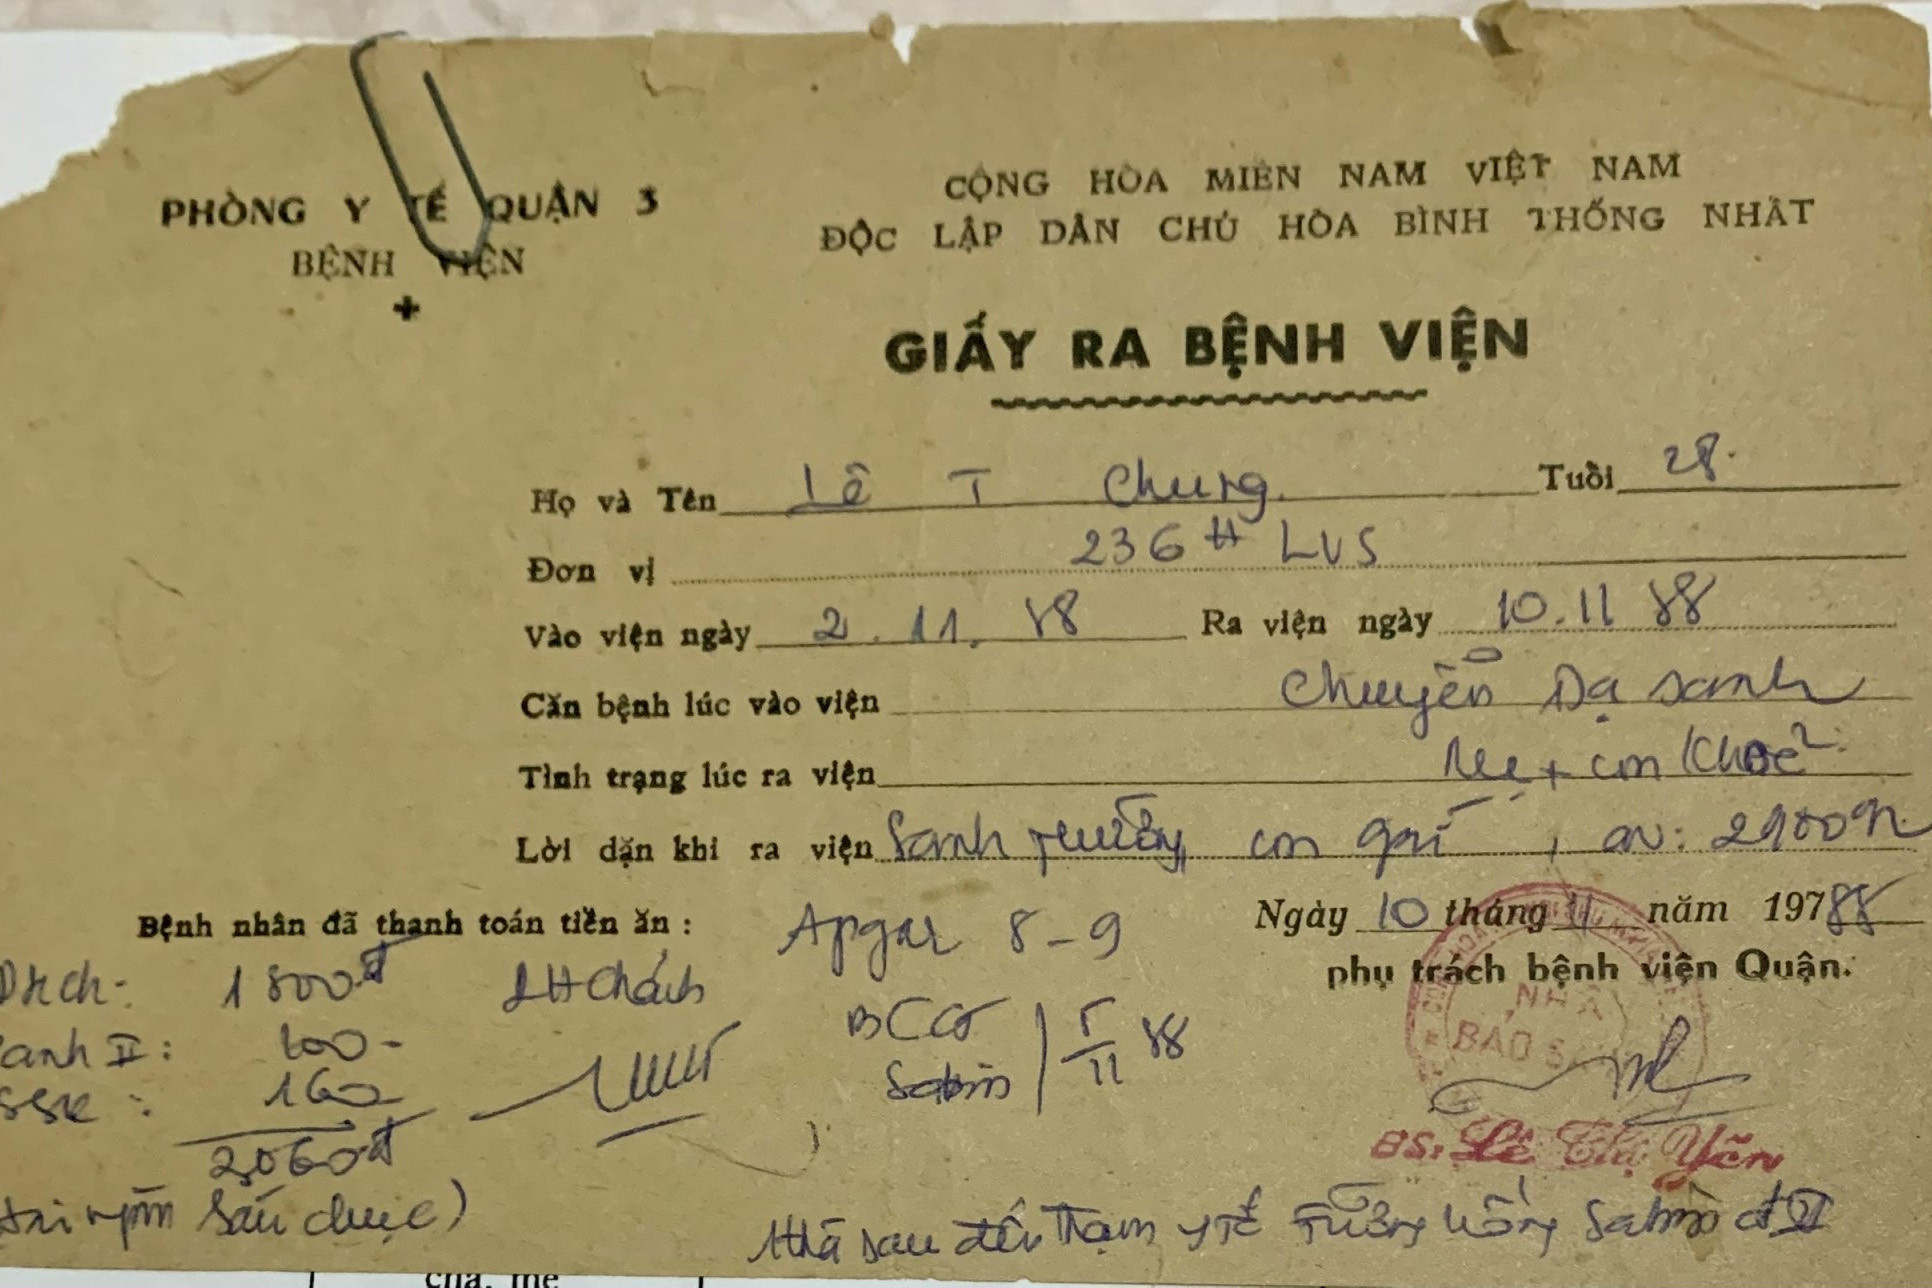 PHÒNG Y TẾ QUẬN 3
BỆNH VIỆN
+
CỘNG HÒA MIỀN NAM VIỆT NAM
ĐỘC LẬP DÂN CHỦ HÒA BÌNH THỐNG NHẤT
GIẤY RA BỆNH VIỆN
Họ và Tên Lê T Chung. Tuổi 28.
Đơn vị 236 H LVS
Vào viện ngày 2.11.88 Ra viện ngày 10.11 88
Căn bệnh lúc vào viện Chuyển Dạ sanh
Tình trạng lúc ra viện Mẹ + con khoẻ
Lời dặn khi ra viện Sanh thường, con gái, CN: 2900g
Bệnh nhân đã thanh toán tiền ăn :
Ngày 10 tháng 11 năm 19788
phụ trách bệnh viện Quận.
Apgar 8 - 9
1800đ
anh II : 100 -
160
2,060đ
sáu chục)
BCG
Sabin 5/11 88
NHÀ
BẢO S
BS: Lê Thị Yến
sau đến Trạm y tế Phường uống Sabin đ II
cha, mẹ